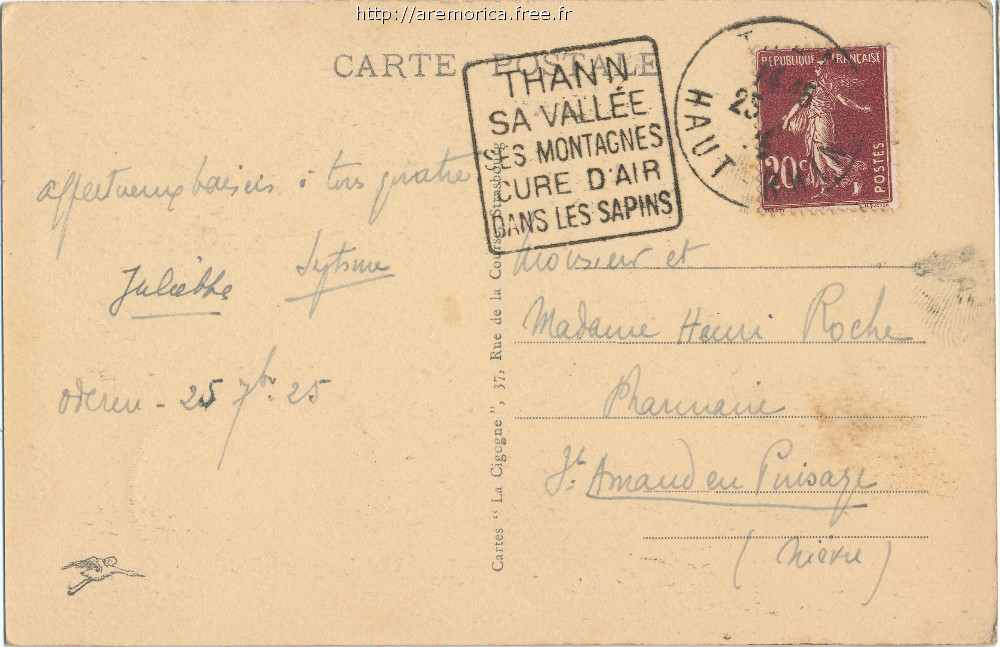 http://aremorica.free.fr
CARTE POSTALE
THANN
SA VALLÉE
SES MONTAGNES
CURE D'AIR
DANS LES SAPINS
HAUT RHIN
25
REPUBLIQUE FRANÇAISE
20c
POSTES
affectueux baisers à tous quatre
Juliette
oderen - 25 7bre 25
Cartes "La Cigogne", 37, Rue de la Course, Strasbourg
Monsieur et
Madame Henri Roche
Pharmacie
St. Amand en Puisaye
(Nièvre)